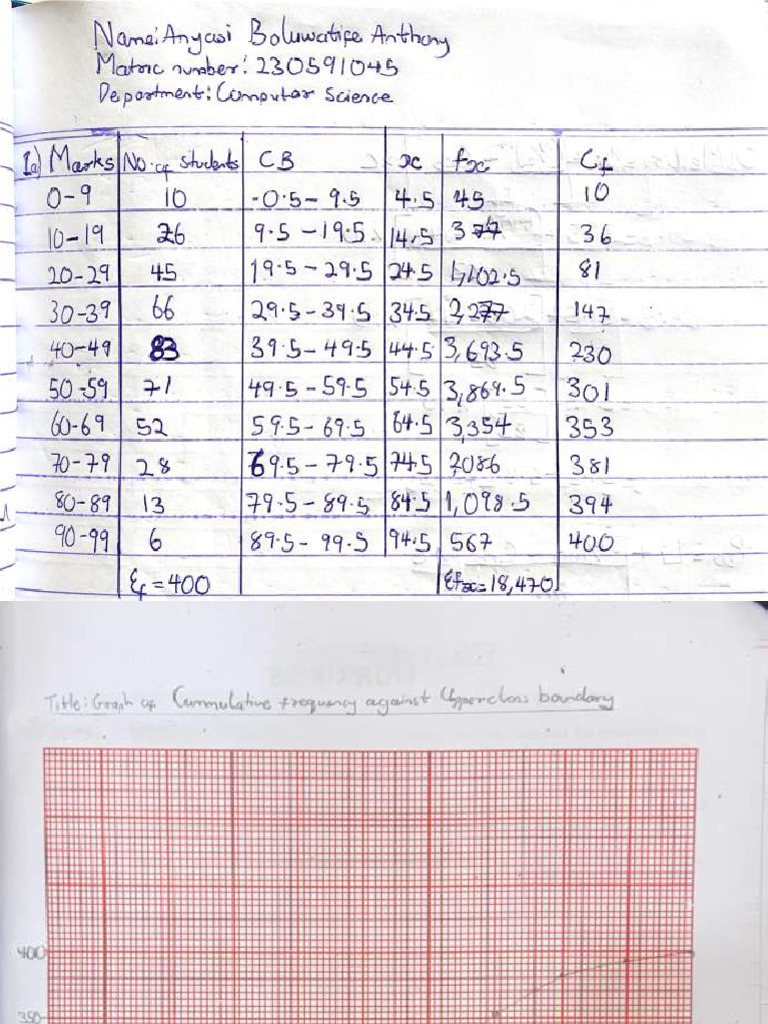 Name: Anyasi Boluwatife Anthony
Matric number: 230591045
Department: Computer Science
1a) Marks No. of students CB x fx Cf
0-9 10 -0.5 – 9.5 4.5 45 10
10-19 26 9.5 – 19.5 14.5 377 36
20-29 45 19.5 – 29.5 24.5 1,102.5 81
30-39 66 29.5 – 39.5 34.5 2,277 147
40-49 83 39.5 – 49.5 44.5 3,693.5 230
50-59 71 49.5 – 59.5 54.5 3,869.5 301
60-69 52 59.5 – 69.5 64.5 3,354 353
70-79 28 69.5 – 79.5 74.5 2086 381
80-89 13 79.5 – 89.5 84.5 1,098.5 394
90-99 6 89.5 – 99.5 94.5 567 400
Σf = 400 Σfx = 18,470
Title: Graph of Cummulative frequency against Upperclass boundary
400
350